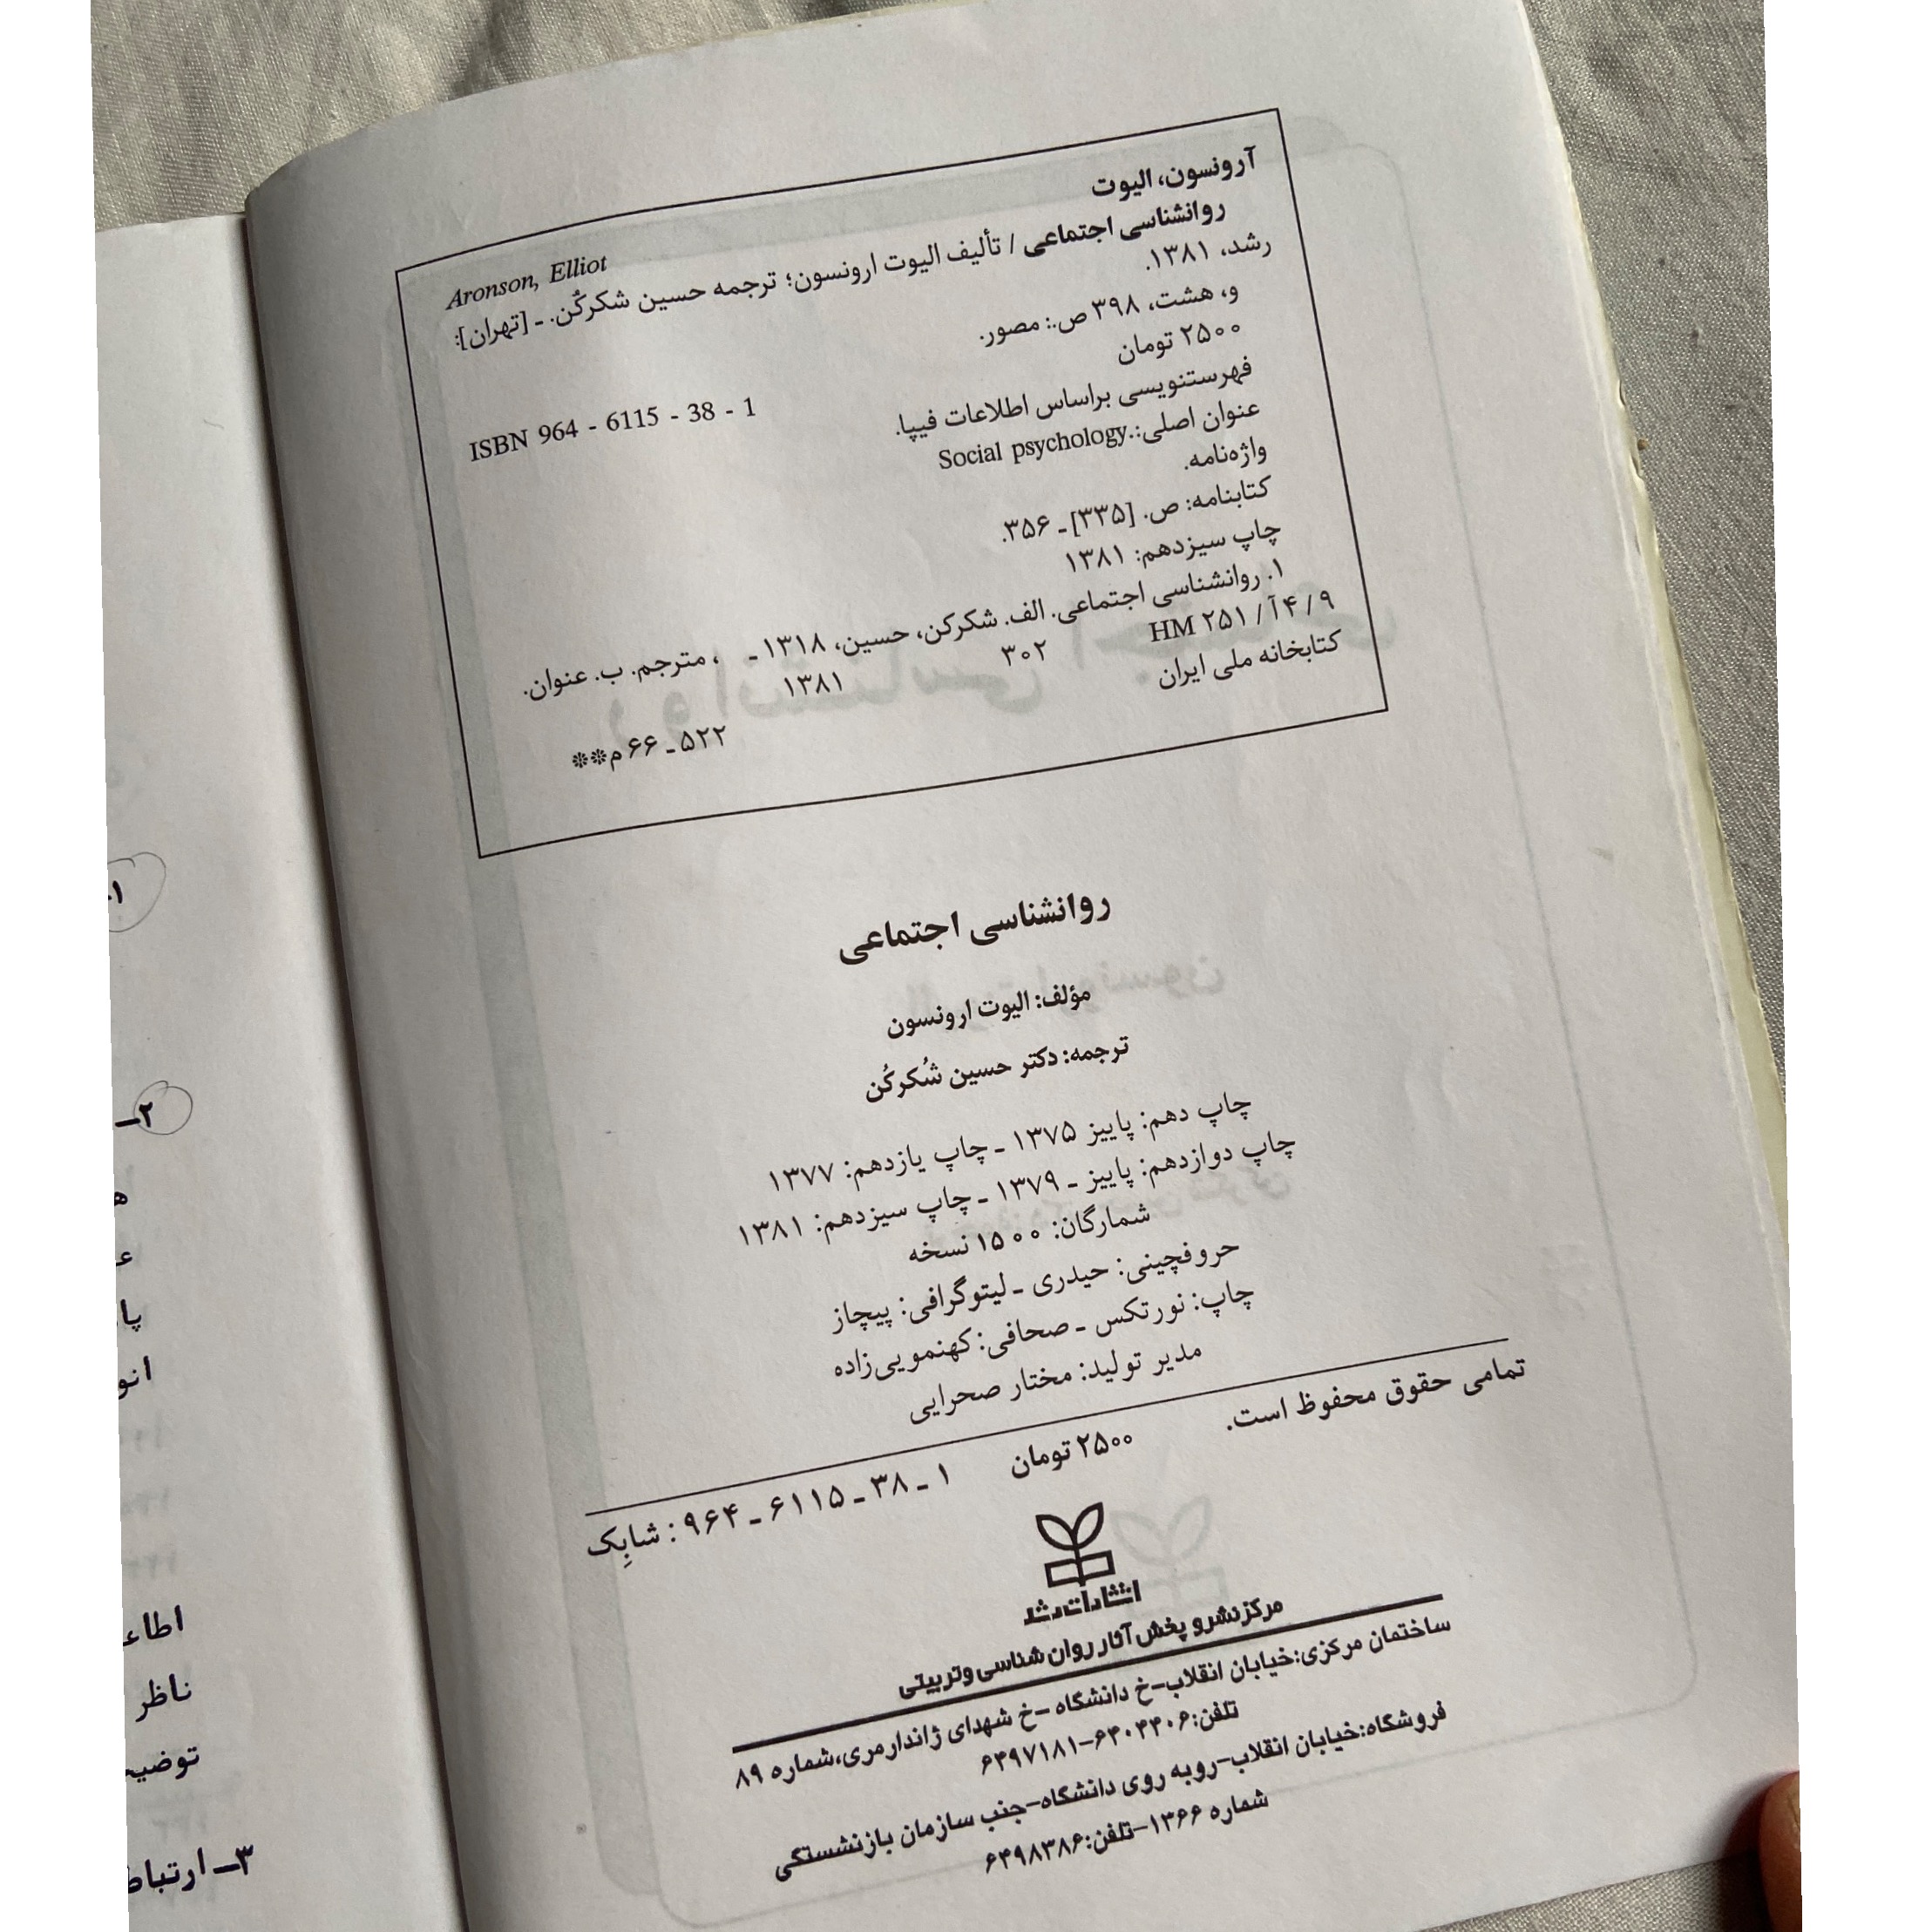 آرونسون، الیوت
Aronson, Elliot
روانشناسی اجتماعی / تألیف الیوت ارونسون؛ ترجمه حسین شکرکُن. ـ [تهران]:
رشد، ۱۳۸۱.
و، هشت، ۳۹۸ ص.: مصور.
۲۵۰۰ تومان
ISBN 964 - 6115 - 38 - 1
فهرستنویسی براساس اطلاعات فیپا.
عنوان اصلی: Social psychology.
واژه‌نامه.
کتابنامه: ص. [۳۳۵] ـ ۳۵۶.
چاپ سیزدهم: ۱۳۸۱
۱. روانشناسی اجتماعی. الف. شکرکن، حسین، ۱۳۱۸ ـ ، مترجم. ب. عنوان.
۹ / ۴ آ / ۲۵۱ HM ۳۰۲ ۱۳۸۱
کتابخانه ملی ایران
۵۲۲ ـ ۶۶ م**
روانشناسی اجتماعی
مؤلف: الیوت ارونسون
ترجمه: دکتر حسین شُکرکُن
چاپ دهم: پاییز ۱۳۷۵ ـ چاپ یازدهم: ۱۳۷۷
چاپ دوازدهم: پاییز ـ ۱۳۷۹ ـ چاپ سیزدهم: ۱۳۸۱
شمارگان: ۱۵۰۰ نسخه
حروفچینی: حیدری ـ لیتوگرافی: پیچاز
چاپ: نورتکس ـ صحافی: کهنمویی‌زاده
مدیر تولید: مختار صحرایی
تمامی حقوق محفوظ است.
۲۵۰۰ تومان
۱ ـ ۳۸ ـ ۶۱۱۵ ـ ۹۶۴ : شابِک
انتشارات رشد
مرکز نشر و پخش آثار روان شناسی و تربیتی
ساختمان مرکزی:خیابان انقلاب–خ دانشگاه –خ شهدای ژاندارمری،شماره ۸۹
تلفن:۶۴۰۴۴۰۶–۶۴۹۷۱۸۱
فروشگاه:خیابان انقلاب–روبه روی دانشگاه–جنب سازمان بازنشستگی
شماره ۱۳۶۶–تلفن:۶۴۹۸۳۸۶
۲ـ
اطلاع
ناظر
توضیح
۳ـ ارتباط